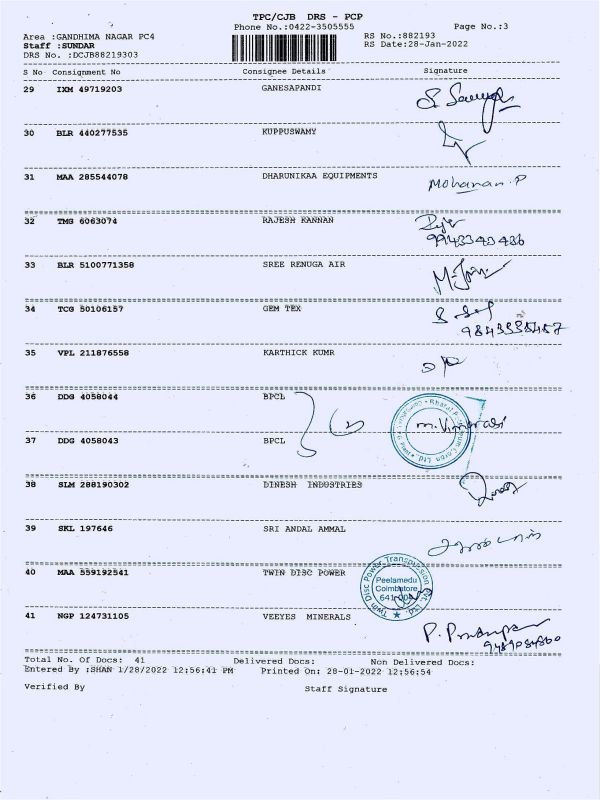 TPC/CJB DRS - PCP
Phone No.:0422-3505555 Page No.:3
Area :GANDHIMA NAGAR PC4 RS No.:882193
Staff :SUNDAR RS Date:28-Jan-2022
DRS No. :DCJB88219303
S No Consignment No Consignee Details Signature
29 IXM 49719203 GANESAPANDI
30 BLR 440277535 KUPPUSWAMY
31 MAA 285544078 DHARUNIKAA EQUIPMENTS Mohanan.P
32 TMG 6063074 RAJESH KANNAN
33 BLR 5100771358 SREE RENUGA AIR
34 TCG 50106157 GEM TEX
35 VPL 211876558 KARTHICK KUMR
36 DDG 4058044 BPCL
37 DDG 4058043 BPCL
38 SLM 288190302 DINESH INDUSTRIES
39 SKL 197646 SRI ANDAL AMMAL
40 MAA 559192541 TWIN DISC POWER Twin Disc Power Transmission Pvt. Ltd.
Peelamedu
Coimbatore
641 004
41 NGP 124731105 VEEYES MINERALS
Total No. Of Docs: 41 Delivered Docs: Non Delivered Docs:
Entered By :SHAN 1/28/2022 12:56:41 PM Printed On: 28-01-2022 12:56:54
Verified By Staff Signature